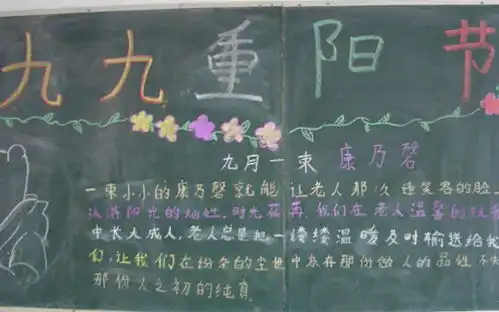 九九重阳节
九月一束 康乃馨
一束小小的康乃馨就能让老人那久违笑容的脸
阳光的灿烂。时光荏苒,我们在老人温馨的
中长大成人,老人总是把一缕缕温暖及时输送给我
们,让我们在纷杂的尘世中永存那份做人的品性不
那份人之初的纯真